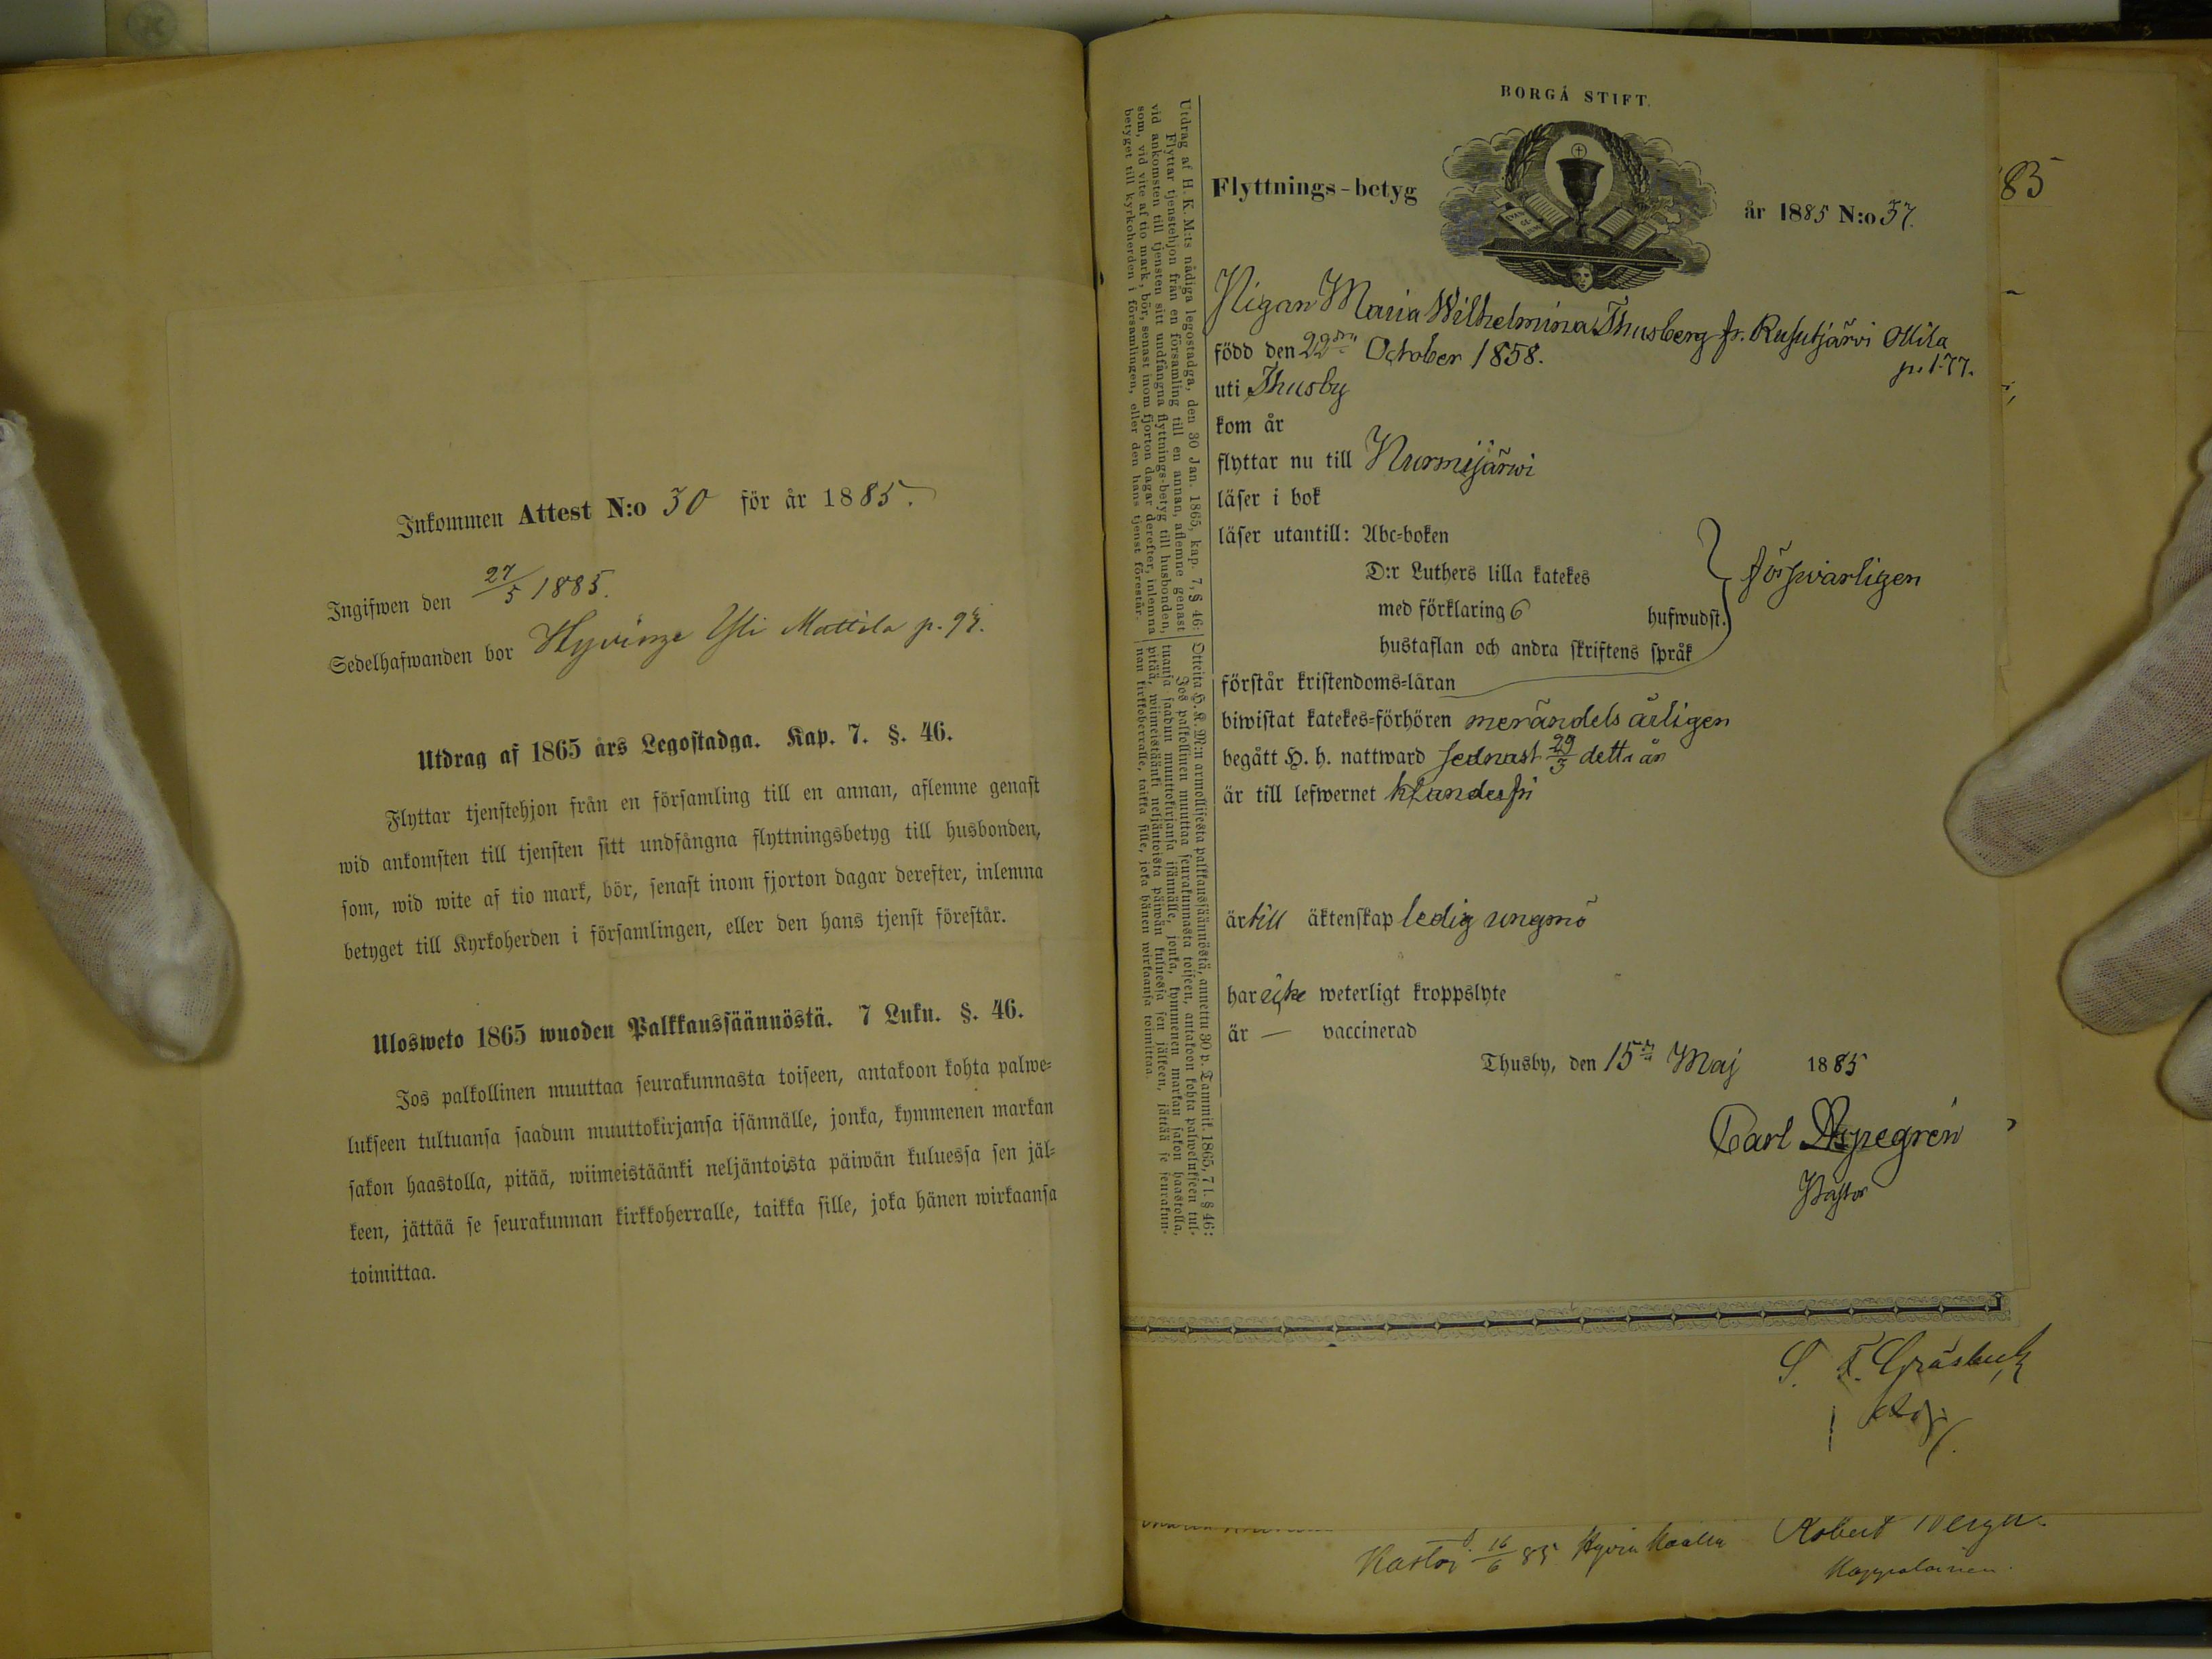 Inkommen Attest N:o 30 för år 1885.
Ingifwen den 27/5 1885.
Sedelhafwanden bor Hyvinge Yli Mattila p. 94.
Utdrag af 1865 års Legostadga. Kap. 7. §. 46.
Flyttar tjenstehjon från en församling till en annan, aflemne genast
wid ankomsten till tjensten sitt undfångna flyttningsbetyg till husbonden,
som, wid wite af tio mark, bör, senast inom fjorton dagar derefter, inlemna
betyget till Kyrkoherden i församlingen, eller den hans tjenst förestår.
Ulosweto 1865 wuoden Palkkaussäännöstä. 7 Luku. §. 46.
Jos palkollinen muuttaa seurakunnasta toiseen, antakoon kohta palwe-
lukseen tultuansa saadun muuttokirjansa isännälle, jonka, kymmenen markan
sakon haastolla, pitää, wiimeistäänki neljäntoista päiwän kuluessa sen jäl-
keen, jättää se seurakunnan kirkkoherralle, taikka sille, joka hänen wirkaansa
toimittaa.
Utdrag af H. K. M:ts nådiga legostadga, den 30 Jan. 1865, kap. 7, § 46:
Flyttar tjenstehjon från en församling till en annan, aflemne genast
vid ankomsten till tjensten sitt undfångna flyttnings-betyg till husbonden,
som, vid vite af tio mark, bör, senast inom fjorton dagar derefter, inlemna
betyget till kyrkoherden i församlingen, eller den hans tjenst förestår.
Otteita H. K. M:n armollisesta palkkaussäännöstä, annettu 30 p. Tammik. 1865, 7 l. § 46:
Jos palkollinen muuttaa seurakunnasta toiseen, antakoon kohta palwelukseen tul-
tuansa saadun muuttokirjansa isännälle, jonka, kymmenen markan sakon haastolla,
pitää, wiimeistäänki neljäntoista päiwän kuluessa sen jälkeen, jättää se seurakun-
nan kirkkoherralle, taikka sille, joka hänen wirkaansa toimittaa.
BORGÅ STIFT.
Flyttnings-betyg
år 1885 N:o 37.
Pigan Maria Wilhelmina Thusberg fr. Rusutjärvi Ollila
p. 177.
född den 22dra October 1858.
uti Thusby
kom år
flyttar nu till Nurmijärwi
läser i bok
läser utantill: Abc-boken
D:r Luthers lilla katekes
med förklaring 6 hufwudst.
försvarligen
hustaflan och andra skriftens språk
förstår kristendoms-läran
biwistat katekes-förhören merändels årligen
begått H. h. nattward sednast 29/3 detta år
är till lefwernet klanderfri
är till äktenskap ledig ungmö
har icke weterligt kroppslyte
är — vaccinerad
Thusby, den 15de Maj 1885
Carl Aspegrén
Pastor
83
Hyvin
Robert
Kappalainen.